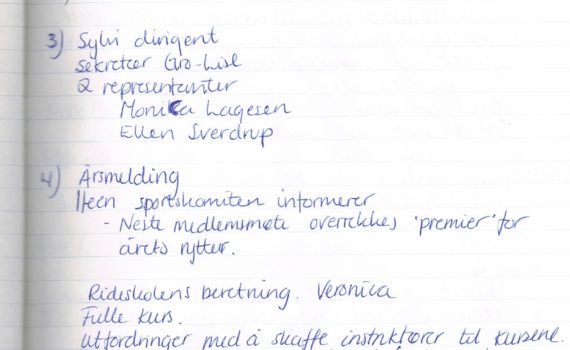 3) Sylvi dirigent
Sekretær Gro-Lise
2 representanter
Monica Lagesen
Ellen Sverdrup
4) Årsmelding
Heen sportskomiten informerer
- Neste medlemsmøte overrekkes 'premier' for
årets rytter.
Rideskolens beretning. Veronica
Fulle kurs.
Utfordringer med å skaffe instruktører til kursene.